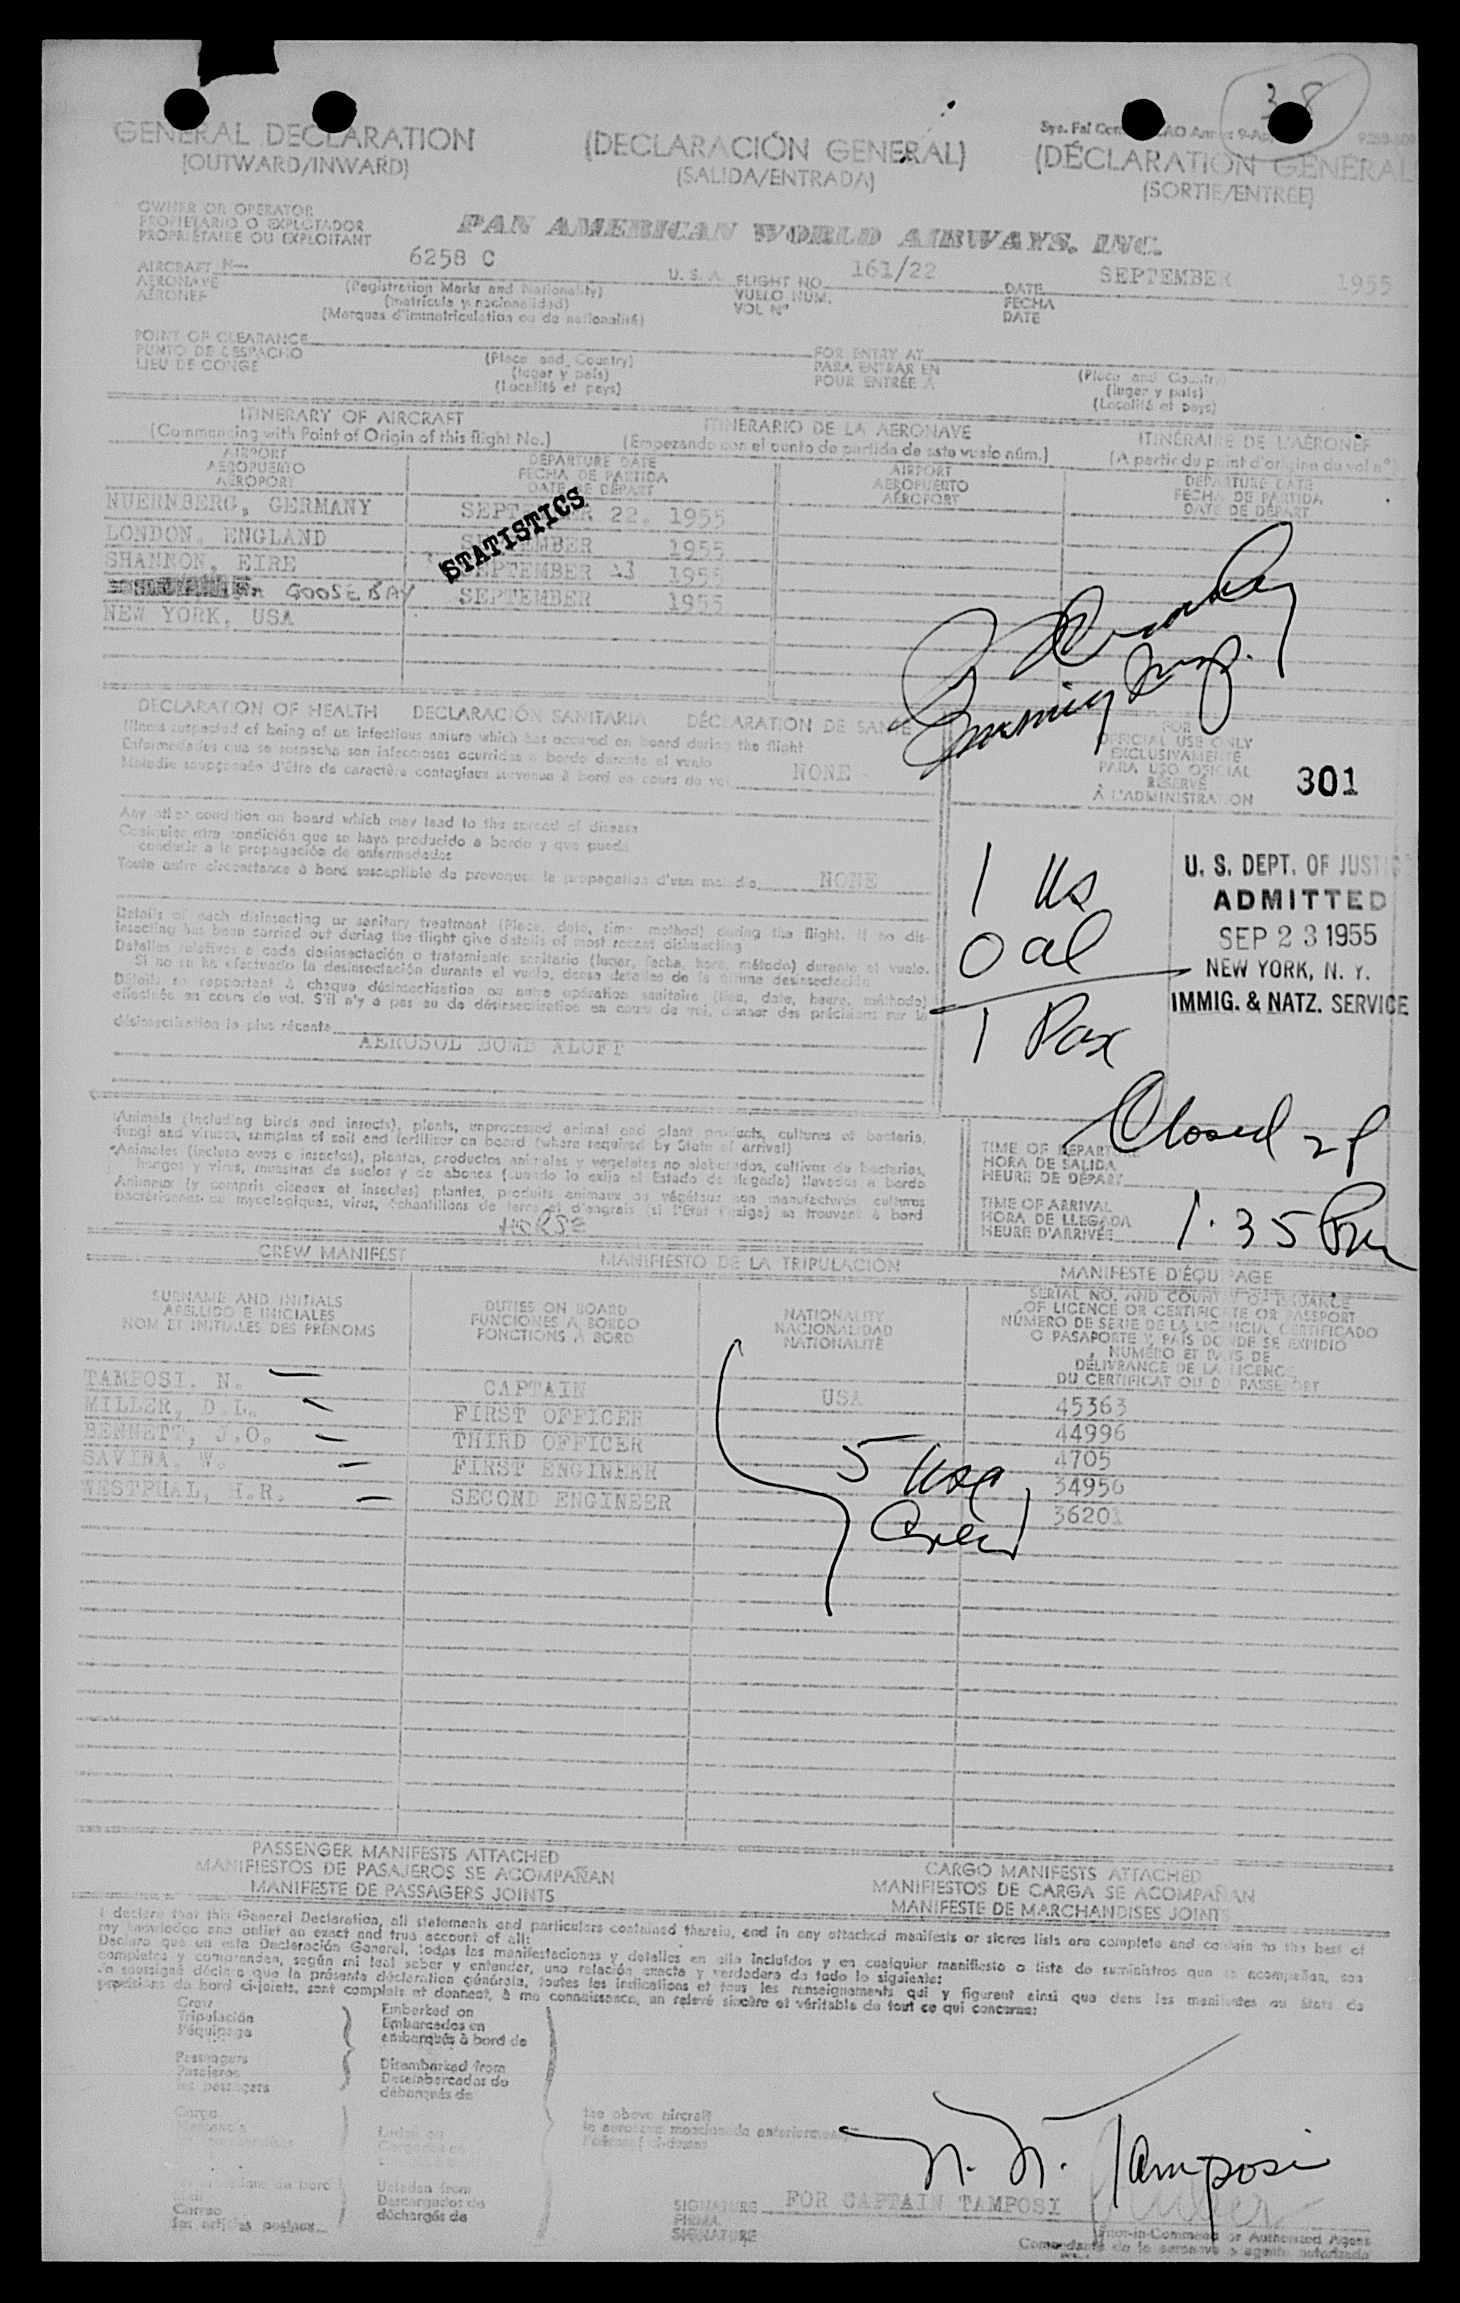 38
GENERAL DECLARATION
(OUTWARD/INWARD)
(DECLARACIÓN GENERAL)
(SALIDA/ENTRADA)
(DÉCLARATION GÉNÉRALE
(SORTIE/ENTRÉE)
OWNER OR OPERATOR
PROPIETARIO O EXPLOTADOR
PROPRIÉTAIRE OU EXPLOITANT
PAN AMERICAN WORLD AIRWAYS, INC.
AIRCRAFT N- 6258 C U. S. A. FLIGHT NO. 161/22 DATE SEPTEMBER 1955
AERONAVE (Registration Marks and Nationality) VUELO NUM. FECHA
AÉRONEF (matrícula y nacionalidad) VOL Nº DATE
(Marques d'immatriculation ou de nationalité)
POINT OF CLEARANCE FOR ENTRY AT
PUNTO DE DESPACHO (Place and Country) PARA ENTRAR EN (Place and Country)
LIEU DE CONGE (lugar y país) POUR ENTRÉE A (lugar y país)
(Localité et pays) (Localité et pays)
ITINERARY OF AIRCRAFT ITINERARIO DE LA AERONAVE ITINÉRAIRE DE L'AÉRONEF
(Commencing with Point of Origin of this flight No.) (Empezando con el punto de partida de este vuelo núm.) (A partir du point d'origine du vol nº)
AIRPORT DEPARTURE DATE AIRPORT DEPARTURE DATE
AEROPUERTO FECHA DE PARTIDA AEROPUERTO FECHA DE PARTIDA
AÉROPORT DATE DE DÉPART AÉROPORT DATE DE DÉPART
NUERNBERG, GERMANY SEPTEMBER 22, 1955
STATISTICS
LONDON, ENGLAND SEPTEMBER 1955
SHANNON, EIRE SEPTEMBER 23 1955
GOOSE BAY SEPTEMBER 1955
NEW YORK, USA
DECLARATION OF HEALTH DECLARACIÓN SANITARIA DÉCLARATION DE SANTÉ
Illness suspected of being of an infectious nature which has occured on board during the flight
Enfermedades que se sospecha son infecciosas ocurridas a bordo durante el vuelo
Maladie soupçonnée d'être de caractère contagieux survenue à bord en cours de vol NONE
FOR
OFFICIAL USE ONLY
EXCLUSIVAMENTE
PARA USO OFICIAL
RESERVÉ
À L'ADMINISTRATION
301
Any other condition on board which may lead to the spread of disease
Cualquier otra condición que se haya producido a bordo y que pueda
conducir a la propagación de enfermedades
Toute autre circonstance à bord susceptible de provoquer la propagation d'une maladie NONE
1 US
0 al
1 Pax
U. S. DEPT. OF JUSTICE
ADMITTED
SEP 23 1955
NEW YORK, N. Y.
IMMIG. & NATZ. SERVICE
Details of each disinsecting or sanitary treatment (Place, date, time, method) during the flight. If no dis-
insecting has been carried out during the flight give details of most recent disinsecting
Detalles relativos a cada desinsectación o tratamiento sanitario (lugar, fecha, hora, método) durante el vuelo.
Si no se ha efectuado la desinsectación durante el vuelo, dense detalles de la última desinsectación
Détails se rapportant à chaque désinsectisation ou autre opération sanitaire (lieu, date, heure, méthode)
effectuée en cours de vol. S'il n'y a pas eu de désinsectisation en cours de vol, donner des précisions sur la
désinsectisation la plus récente
AEROSOL BOMB ALOFT
Animals (including birds and insects), plants, unprocessed animal and plant products, cultures of bacteria,
fungi and viruses, samples of soil and fertilizer on board (where required by State of arrival)
Animales (incluso aves e insectos), plantas, productos animales y vegetales no elaborados, cultivos de bacterias,
hongos y virus, muestras de suelos y de abonos (cuando lo exija el Estado de llegada) llevados a bordo
Animaux (y compris oiseaux et insectes) plantes, produits animaux ou végétaux non manufacturés, cultures
bactériennes ou mycologiques, virus, échantillons de terre et d'engrais (si l'Etat l'exige) se trouvant à bord
HORSE
Closed 2p
TIME OF DEPARTURE
HORA DE SALIDA
HEURE DE DÉPART
TIME OF ARRIVAL
HORA DE LLEGADA
HEURE D'ARRIVÉE 1.35 Pm
CREW MANIFEST MANIFIESTO DE LA TRIPULACIÓN MANIFESTE D'ÉQUIPAGE
SURNAME AND INITIALS
APELLIDO E INICIALES
NOM ET INITIALES DES PRÉNOMS
DUTIES ON BOARD
FUNCIONES A BORDO
FONCTIONS À BORD
NATIONALITY
NACIONALIDAD
NATIONALITÉ
SERIAL NO. AND COUNTRY OF ISSUANCE
OF LICENCE OR CERTIFICATE OR PASSPORT
NÚMERO DE SERIE DE LA LICENCIA, CERTIFICADO
O PASAPORTE Y PAÍS DONDE SE EXPIDIO
NUMÉRO ET PAYS DE
DÉLIVRANCE DE LA LICENCE
DU CERTIFICAT OU DU PASSEPORT
TAMPOSI, N. CAPTAIN USA 45363
MILLER, D.L. FIRST OFFICER 44996
BENNETT, J.O. THIRD OFFICER 4705
SAVINA, W. FIRST ENGINEER 34956
WESTPHAL, H.R. SECOND ENGINEER 36201
5 USA
Crew
PASSENGER MANIFESTS ATTACHED
MANIFIESTOS DE PASAJEROS SE ACOMPAÑAN
MANIFESTE DE PASSAGERS JOINTS
CARGO MANIFESTS ATTACHED
MANIFIESTOS DE CARGA SE ACOMPAÑAN
MANIFESTE DE MARCHANDISES JOINTS
I declare that this General Declaration, all statements and particulars contained therein, and in any attached manifests or stores lists are complete and contain to the best of
my knowledge and belief an exact and true account of all:
Declaro que en esta Declaración General, todas las manifestaciones y detalles en ella incluídos y en cualquier manifiesto o lista de suministros que se acompañan, son
completas y comprenden, según mi leal saber y entender, una relación exacta y verdadera de todo lo siguiente:
Je soussigné déclare que la présente déclaration générale, toutes les indications et tous les renseignements qui y figurent ainsi que dans les manifestes ou états de
provisions de bord ci-joints, sont complets et donnent, à ma connaissance, un relevé sincère et véritable de tout ce qui concerne:
Crew
Tripulación
l'équipage
Passengers
Pasajeros
les passagers
Cargo
Embarked on
Embarcados en
embarqués à bord de
Disembarked from
Desembarcados de
débarqués de
Unladen from
Descargados de
déchargés de
the above aircraft
la aeronave mencionada anteriormente
N. N. Tamposi
SIGNATURE FOR CAPTAIN TAMPOSI
FIRMA
SIGNATURE
Pilot-in-Command or Authorized Agent
Comandante de la aeronave o agente autorizado